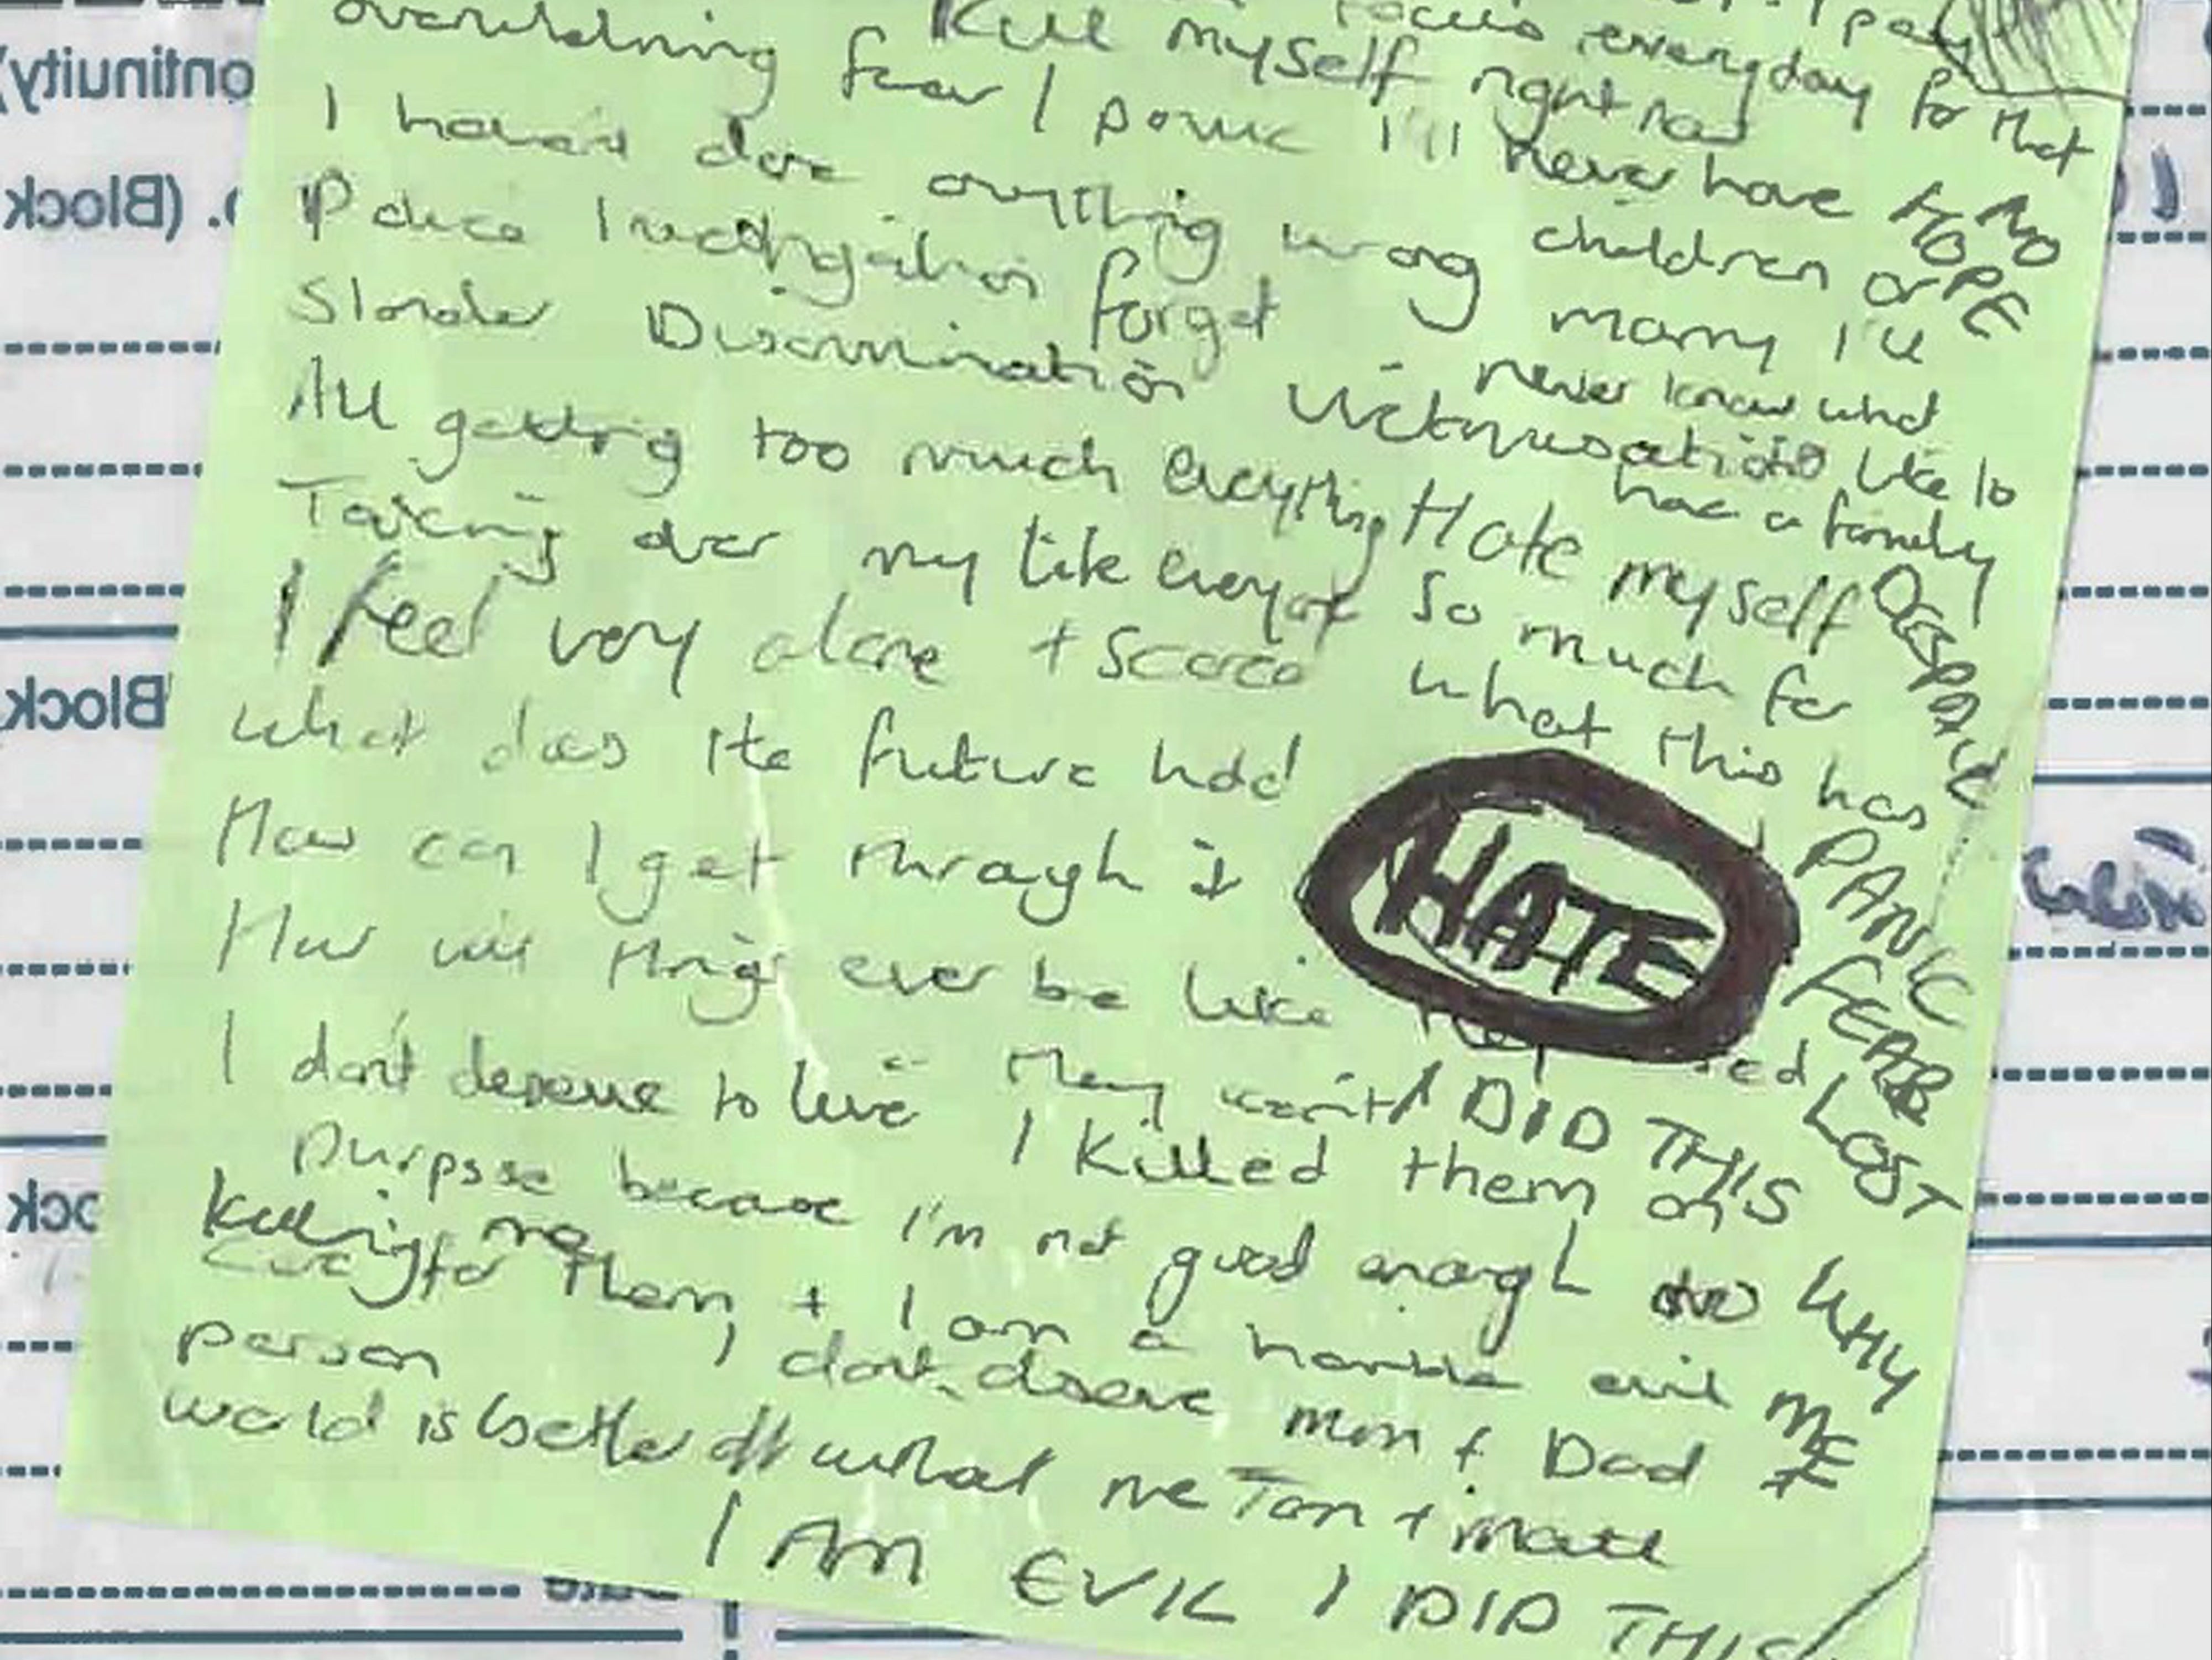 overwhelming fear I panic I'll never have
kill myself right now
focus everyday for that
I haven't done anything wrong
children or
NO
HOPE
Police Investigation forget
marry I'll
never know what
Slander Discrimination Victimisation like to
have a family
All getting too much everything
Hate myself
so much for
what this has
DESPAIR
Taking over my life everyone
I feel very alone + scared
What does the future hold
How can I get through it
HATE
PANIC
FEAR
LOST
How will things ever be like
I don't deserve to live They won't
I DID THIS
I killed them on
purpose because I'm not good enough to
WHY
ME
killing me
care for them + I am a horrible evil
person I don't deserve Mum + Dad
world is better off without me Tom + Matt
I AM EVIL I DID THIS
ontinuity)
(Block
Block
ock
Date